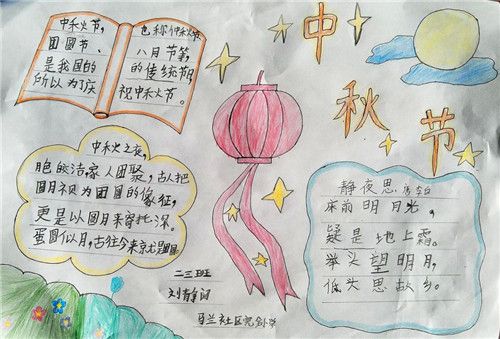 中秋节
中秋节,
团圆节、
是我国的
所以为了庆
也称仲秋节
八月节等,
的传统节日
祝中秋节。
中秋之夜,
月色皎洁,家人团聚,古人把
圆月视为团圆的象征,
更是以圆月来寄托深。
圆似月,古往今来
静夜思 唐李白
床前明月光,
疑是地上霜。
举头望明月,
低头思故乡。
二三班
刘静
马兰社区完全小学